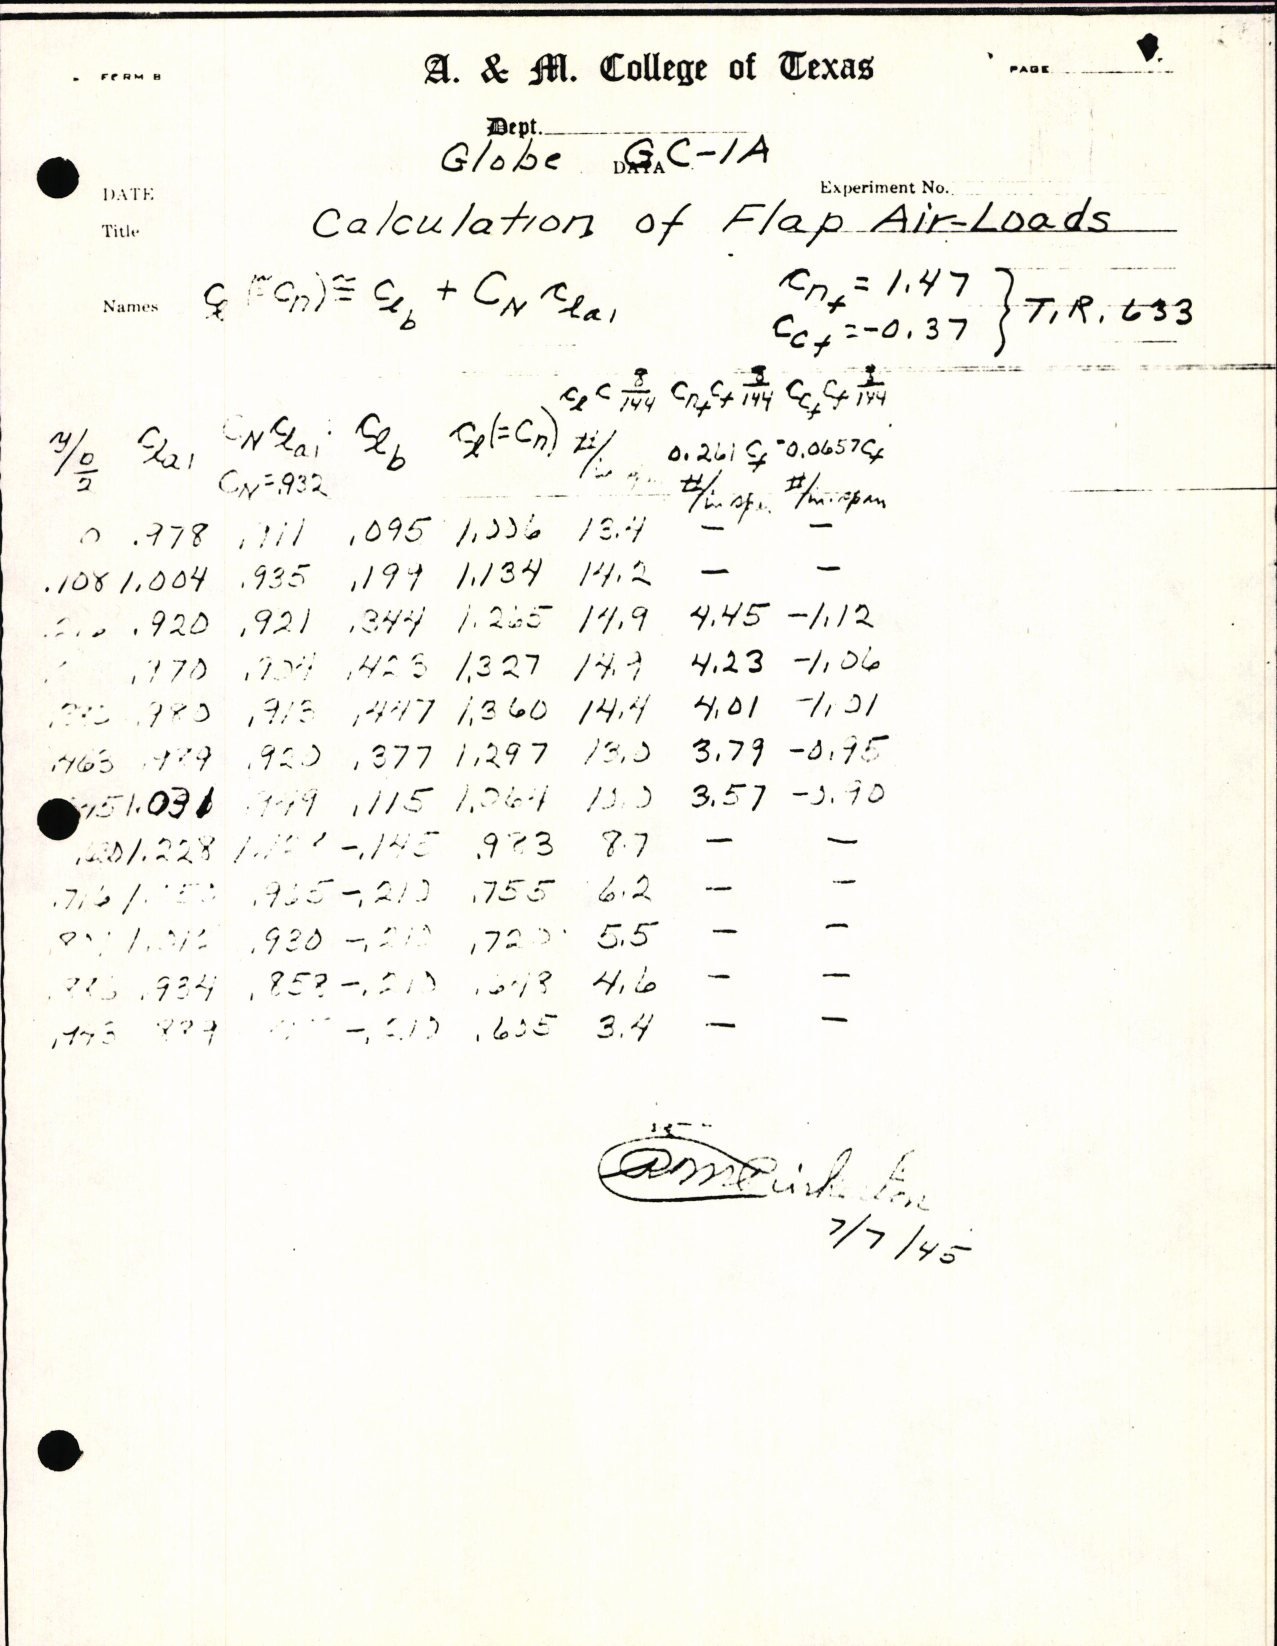 FORM B
A. & M. College of Texas
PAGE
Dept.
Globe GC-1A
DATA
DATE
Experiment No.
Title Calculation of Flap Air-Loads
Names c_l (≅ c_n) ≅ c_lb + C_N c_la1
c_nf = 1.47
c_cf = -0.37 } T.R. 633
c_l c 8/144 c_nf c_f 8/144 c_cf c_f 8/144
y/b/2 c_la1 C_N c_la1 c_lb c_l (= c_n) #/in 0.261 c_f -0.0657 c_f
C_N = .932 #/in span #/in. span
0 .978 .911 .095 1.006 13.4 — —
.108 1.004 .935 .199 1.134 14.2 — —
.920 .921 .344 1.265 14.9 4.45 -1.12
.970 .904 .423 1.327 14.9 4.23 -1.06
.980 .913 .447 1.360 14.4 4.01 -1.01
.463 .920 .377 1.297 13.0 3.79 -0.95
1.031 .115 1.064 10.0 3.57 -0.90
1.228 -.145 .983 8.7 — —
.716 .965 -.210 .755 6.2 — —
.930 -.210 .720 5.5 — —
.934 .858 -.210 .648 4.6 — —
-.210 .605 3.4 — —
7/7/45